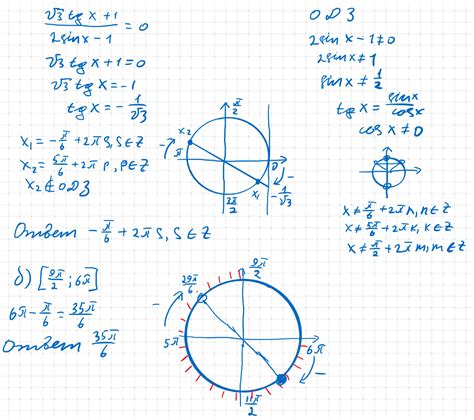 √3 tg x + 1 / 2 sin x − 1 = 0
√3 tg x + 1 = 0
√3 tg x = −1
tg x = − 1/√3
x₁ = − π/6 + 2π s, s ∈ Z
x₂ = 5π/6 + 2π p, p ∈ Z
x₂ ∉ ОДЗ
π/2
x₂
π
0
x₁
− 1/√3
2π/2
Ответ − π/6 + 2π s, s ∈ Z
ОДЗ
2 sin x − 1 ≠ 0
2 sin x ≠ 1
sin x ≠ 1/2
tg x = sin x / cos x
cos x ≠ 0
x ≠ π/6 + 2π n, n ∈ Z
x ≠ 5π/6 + 2π k, k ∈ Z
x ≠ π/2 + 2π m, m ∈ Z
б) [9π/2 ; 6π]
6π − π/6 = 35π/6
Ответ 35π/6
9π/2
29π/6
5π
6π
11π/2